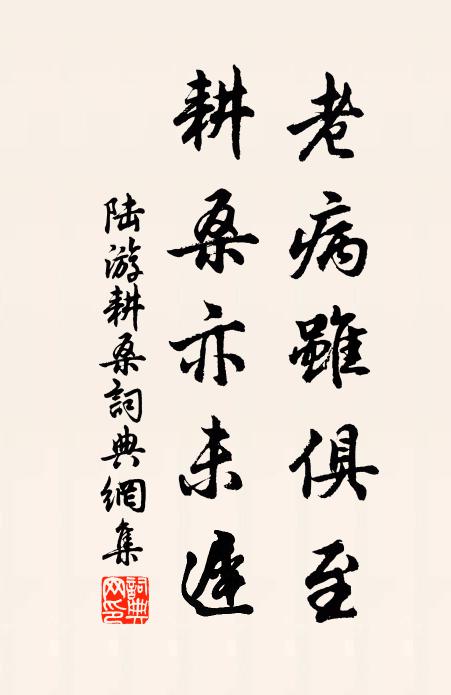 老病雖俱至
耕桑亦未遲
陸游耕桑詞典網集
詞典網印